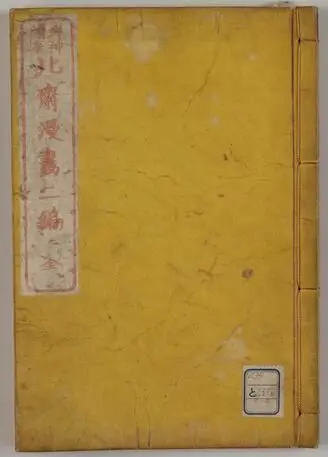 傳神
開手
北齋漫畫二編 全
と